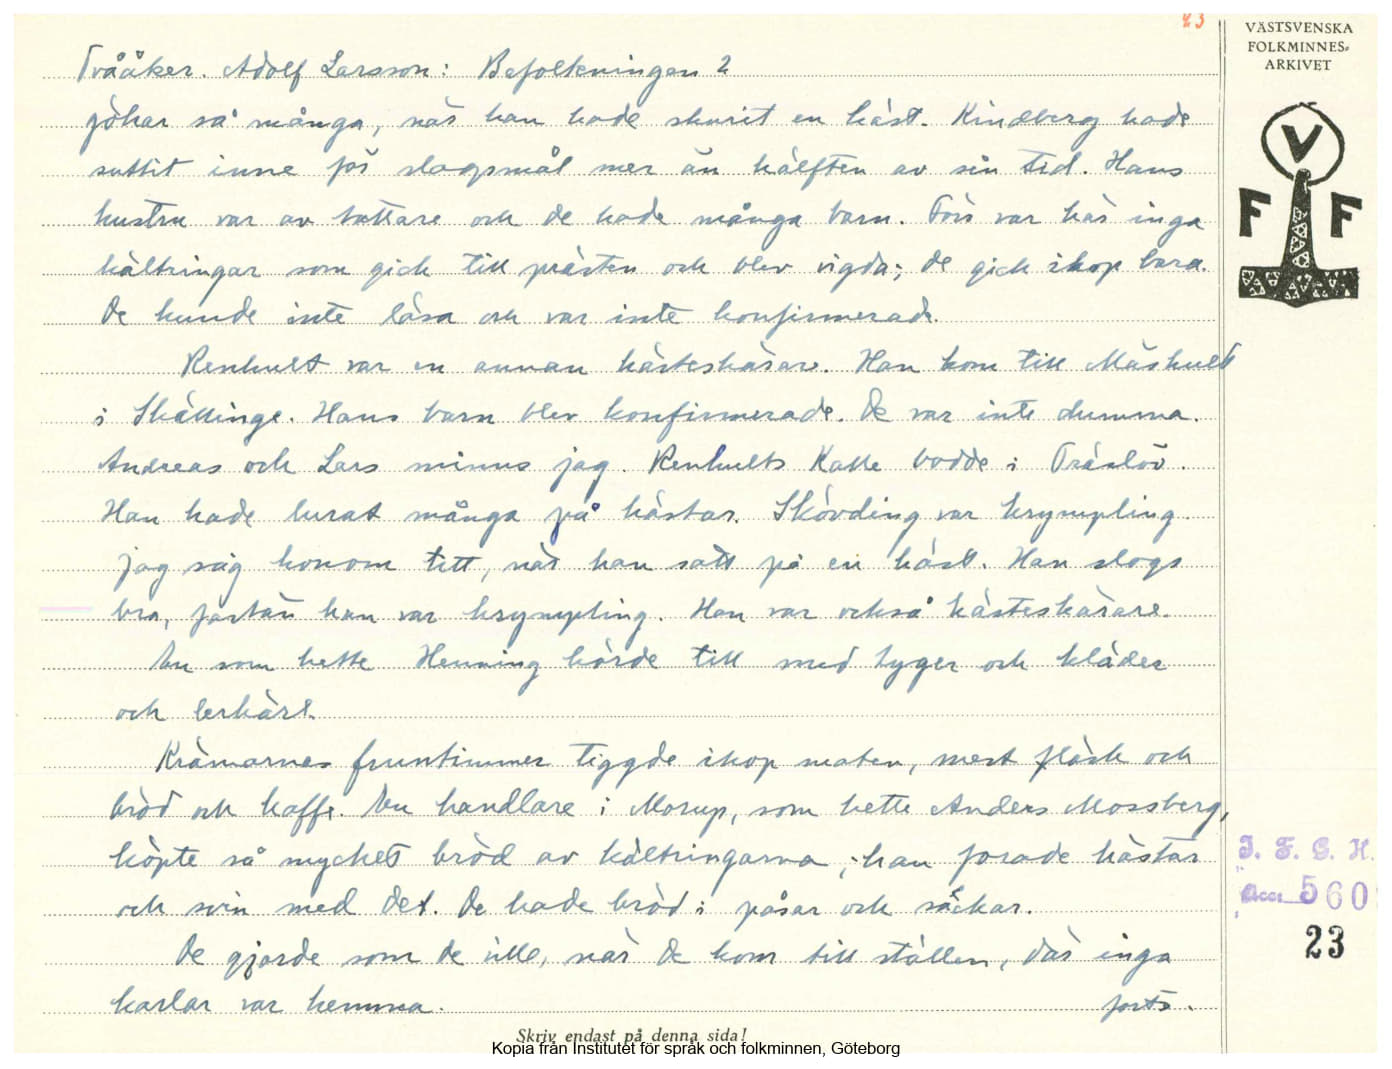 23
VÄSTSVENSKA
FOLKMINNES-
ARKIVET
V
F F
Tvååker. Adolf Larsson: Befolkningen 2
gökar så många, när han hade skurit en häst. Kindberg hade
suttit inne för slagsmål mer än hälften av sin tid. Hans
hustru var av tattare och de hade många barn. Förr var här inga
kältringar som gick till prästen och blev vigda; de gick ihop bara.
De kunde inte läsa och var inte konfirmerade.
Renhult var en annan hästeskärare. Han kom till Mäshult
i Skällinge. Hans barn blev konfirmerade. De var inte dumma.
Andreas och Lars minns jag. Renhults Kalle bodde i Träslöv.
Han hade lurat många på hästar. Skövding var krympling.
jag såg honom titt, när han satt på en häst. Han slogs
bra, fastän han var krympling. Han var också hästeskärare.
En som hette Henning körde till med tyger och kläder
och lerkärl.
Krämarnes fruntimmer tiggde ihop maten, mest fläsk och
bröd och kaffe. En handlare i Morup, som hette Anders Mossberg,
köpte så mycket bröd av kältringarna; han forade hästar
och svin med det. De hade bröd i påsar och säckar.
De gjorde som de ville, när de kom till ställen, där inga
karlar var hemma. forts.
I. F. G. H.
Acc. 560
23
Skriv endast på denna sida!
Kopia från Institutet för språk och folkminnen, Göteborg